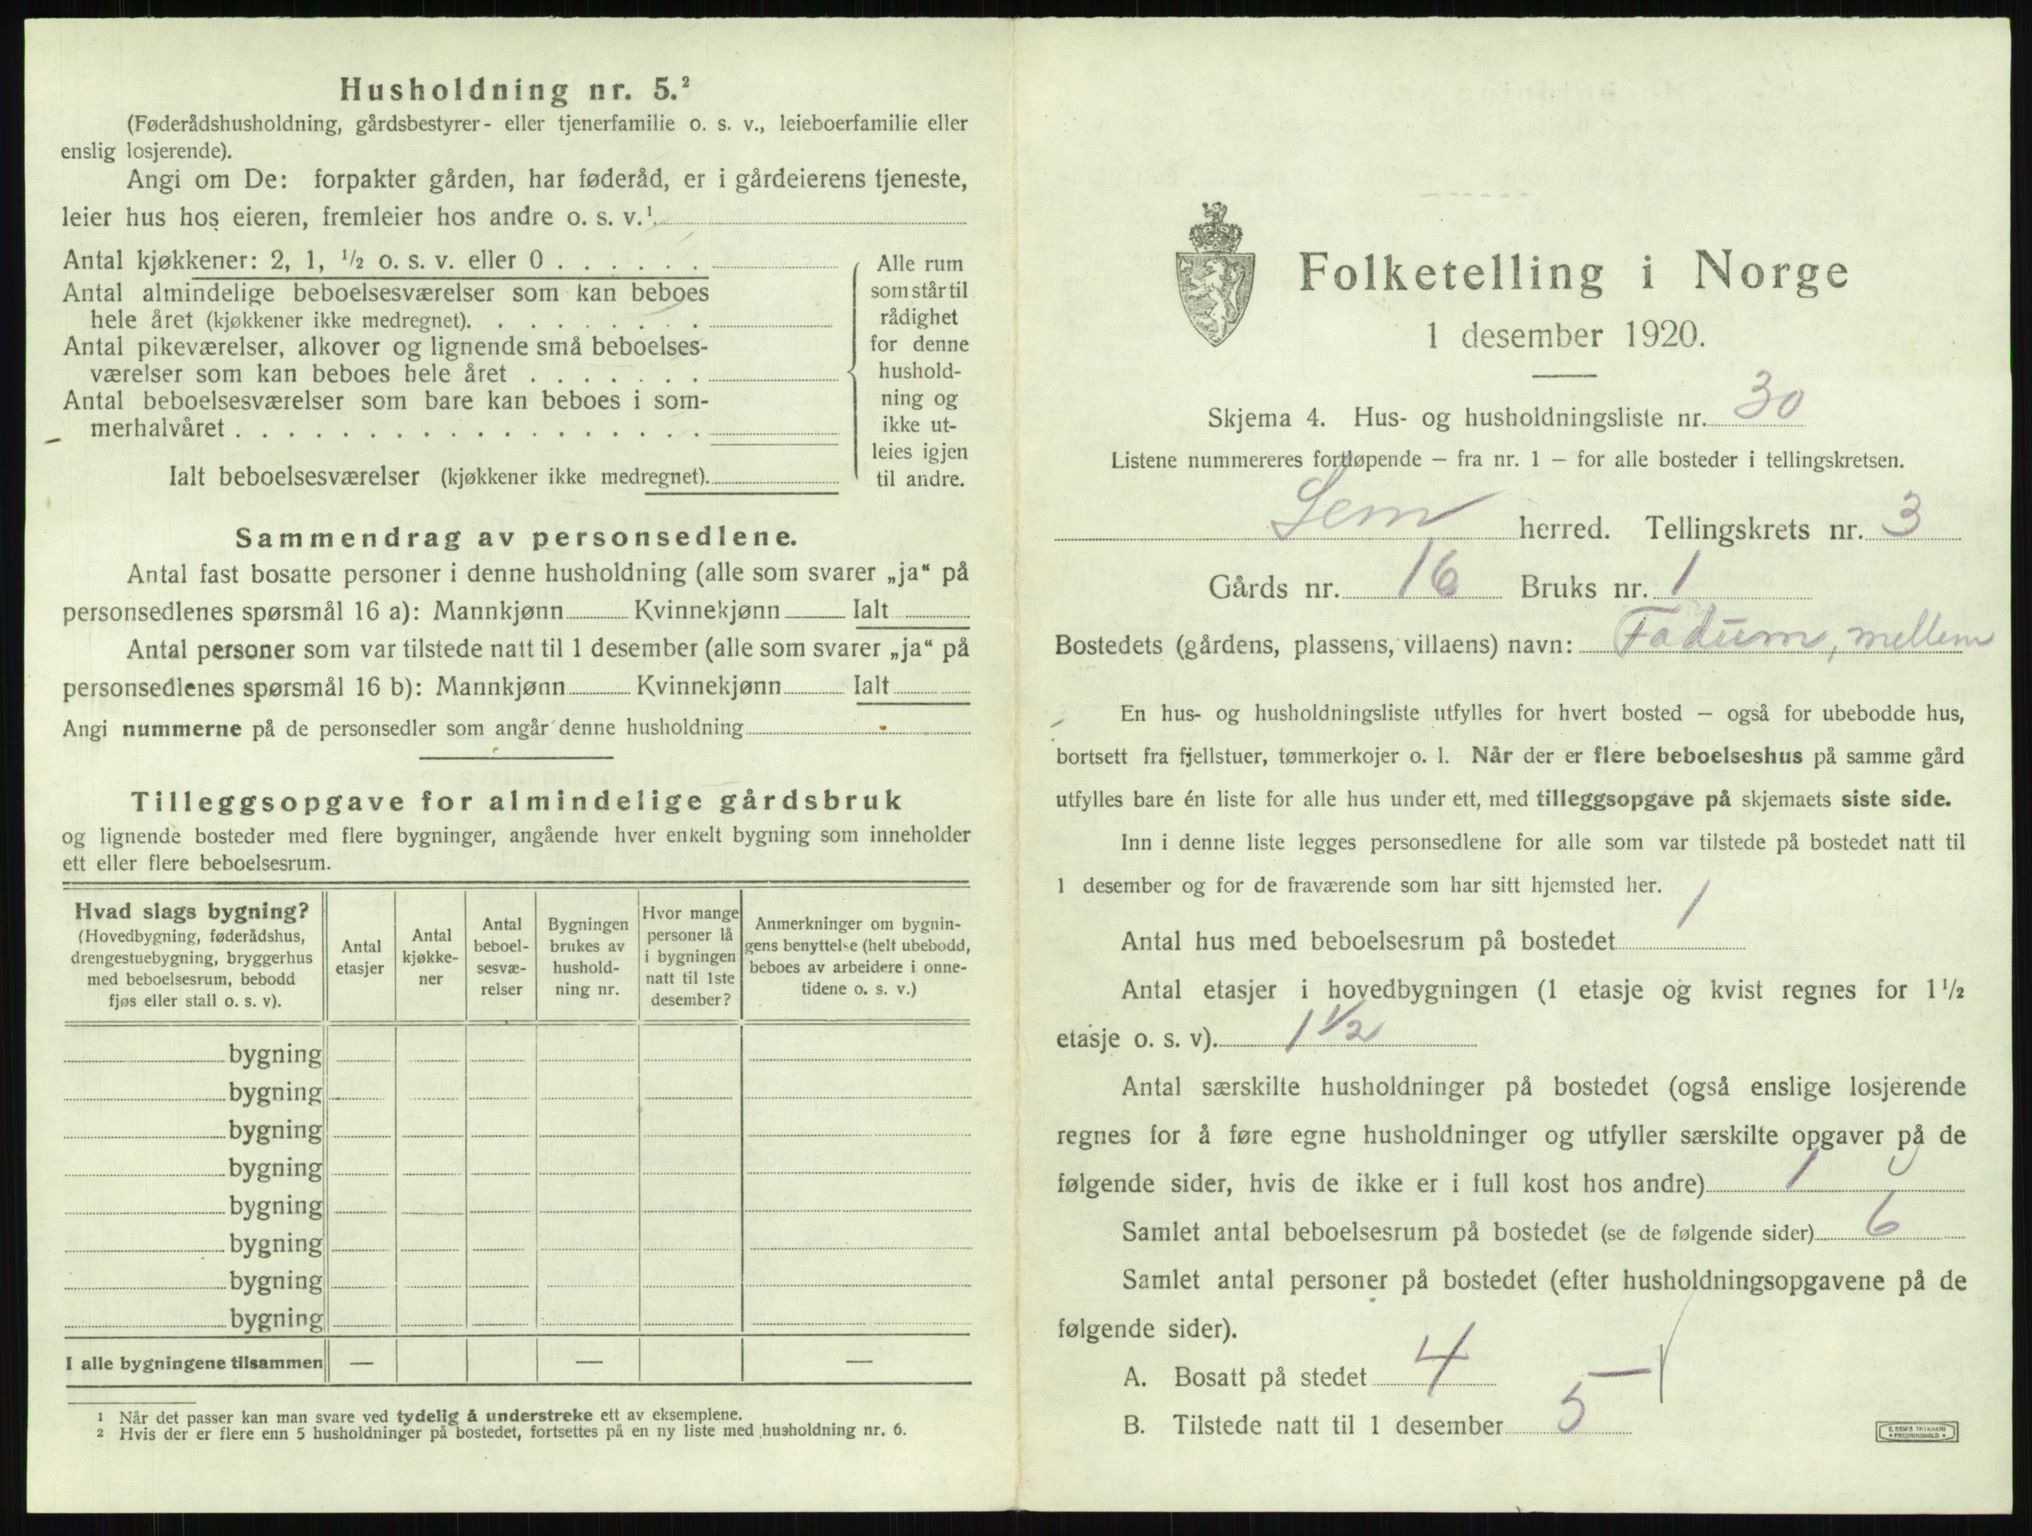 Husholdning nr. 5.²
(Føderådshusholdning, gårdsbestyrer- eller tjenerfamilie o. s. v., leieboerfamilie eller
enslig losjerende).
Angi om De: forpakter gården, har føderåd, er i gårdeierens tjeneste,
leier hus hos eieren, fremleier hos andre o. s. v.¹
Antal kjøkkener: 2, 1, ½ o. s. v. eller 0 . . . . . .
Antal almindelige beboelsesværelser som kan beboes
hele året (kjøkkener ikke medregnet). . . . . . . . .
Antal pikeværelser, alkover og lignende små beboelses-
værelser som kan beboes hele året . . . . . . .
Antal beboelsesværelser som bare kan beboes i som-
merhalvåret . . . . . . . . . . . . . . . . . .
Ialt beboelsesværelser (kjøkkener ikke medregnet).
Alle rum
som står til
rådighet
for denne
hushold-
ning og
ikke ut-
leies igjen
til andre.
Sammendrag av personsedlene.
Antal fast bosatte personer i denne husholdning (alle som svarer „ja“ på
personsedlenes spørsmål 16 a): Mannkjønn Kvinnekjønn Ialt
Antal personer som var tilstede natt til 1 desember (alle som svarer „ja“ på
personsedlenes spørsmål 16 b): Mannkjønn Kvinnekjønn Ialt
Angi nummerne på de personsedler som angår denne husholdning
Tilleggsopgave for almindelige gårdsbruk
og lignende bosteder med flere bygninger, angående hver enkelt bygning som inneholder
ett eller flere beboelsesrum.
Hvad slags bygning?
(Hovedbygning, føderådshus,
drengestuebygning, bryggerhus
med beboelsesrum, bebodd
fjøs eller stall o. s. v).
Antal
etasjer
Antal
kjøkke-
ner
Antal
beboel-
sesvæ-
relser
Bygningen
brukes av
hushold-
ning nr.
Hvor mange
personer lå
i bygningen
natt til 1ste
desember?
Anmerkninger om bygnin-
gens benyttelse (helt ubebodd,
beboes av arbeidere i onne-
tidene o. s. v.)
bygning
bygning
bygning
bygning
bygning
bygning
bygning
bygning
I alle bygningene tilsammen — — —
¹ Når det passer kan man svare ved tydelig å understreke ett av eksemplene.
² Hvis der er flere enn 5 husholdninger på bostedet, fortsettes på en ny liste med husholdning nr. 6.
Folketelling i Norge
1 desember 1920.
Skjema 4. Hus- og husholdningsliste nr. 30
Listene nummereres fortløpende – fra nr. 1 – for alle bosteder i tellingskretsen.
Sem herred. Tellingskrets nr. 3
Gårds nr. 16 Bruks nr. 1
Bostedets (gårdens, plassens, villaens) navn: Fadum, mellem
En hus- og husholdningsliste utfylles for hvert bosted – også for ubebodde hus,
bortsett fra fjellstuer, tømmerkojer o. l. Når der er flere beboelseshus på samme gård
utfylles bare én liste for alle hus under ett, med tilleggsopgave på skjemaets siste side.
Inn i denne liste legges personsedlene for alle som var tilstede på bostedet natt til
1 desember og for de fraværende som har sitt hjemsted her.
Antal hus med beboelsesrum på bostedet 1
Antal etasjer i hovedbygningen (1 etasje og kvist regnes for 1½
etasje o. s. v). 1½
Antal særskilte husholdninger på bostedet (også enslige losjerende
regnes for å føre egne husholdninger og utfyller særskilte opgaver på de
følgende sider, hvis de ikke er i full kost hos andre) 1
Samlet antal beboelsesrum på bostedet (se de følgende sider) 6
Samlet antal personer på bostedet (efter husholdningsopgavene på de
følgende sider).
A. Bosatt på stedet 4
B. Tilstede natt til 1 desember 5